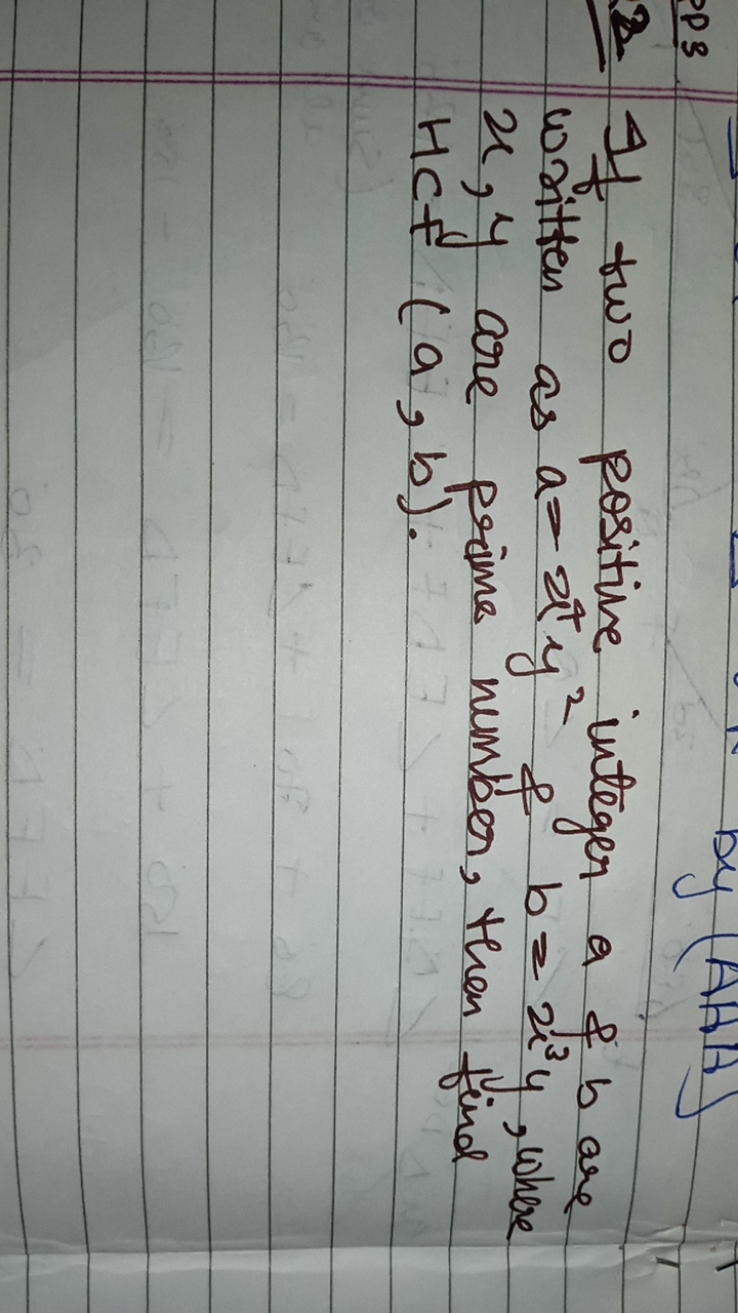 PPS
by (AAA)
2. If two positive integer a & b are
written as a = x⁴y² & b = x³y, where
x, y are prime number, then find
HCF (a, b).